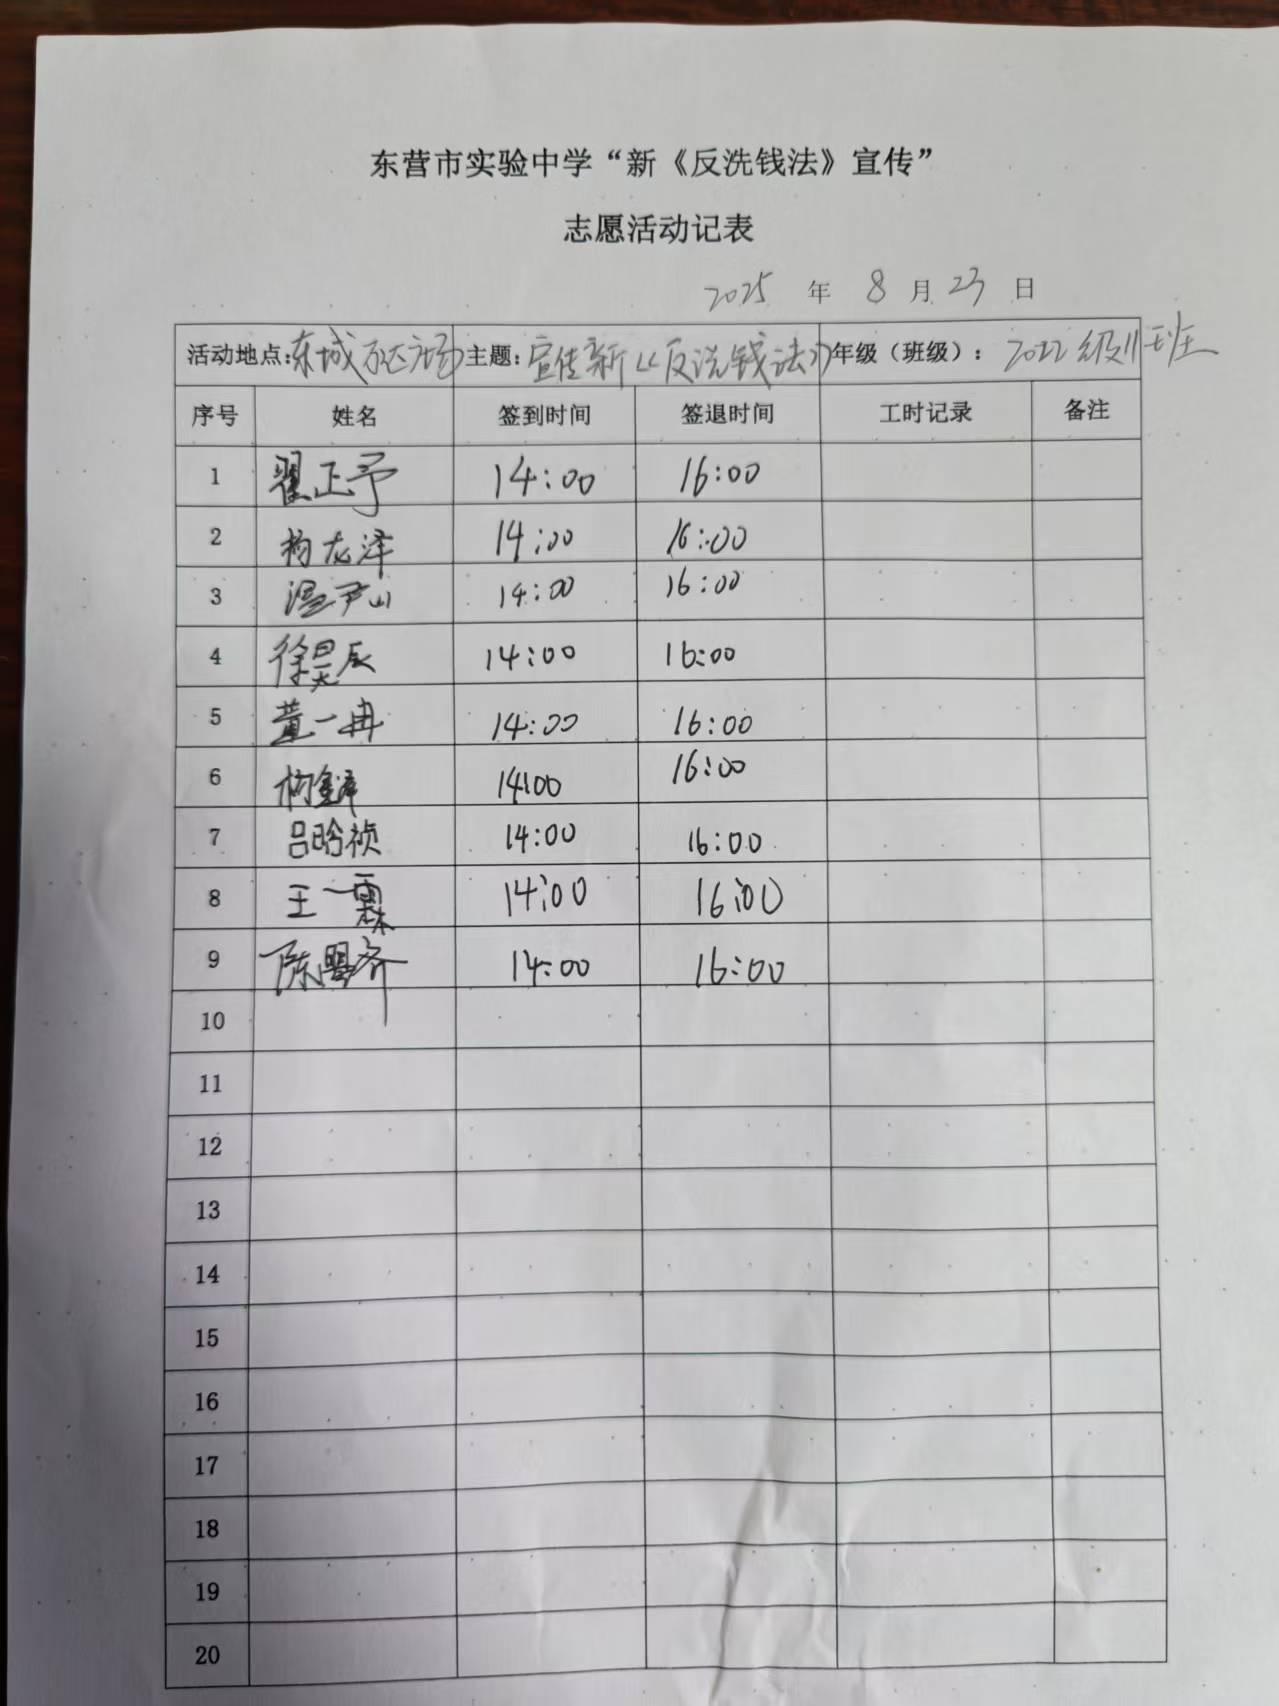 东营市实验中学“新《反洗钱法》宣传”
志愿活动记表
2025 年 8 月 23 日
活动地点:东城万达广场 主题:宣传新《反洗钱法》 年级（班级）: 2022级11班
序号 姓名 签到时间 签退时间 工时记录 备注
1 翟正予 14:00 16:00
2 杨龙泽 14:00 16:00
3 温尹山 14:00 16:00
4 徐昊辰 14:00 16:00
5 董一冉 14:00 16:00
6 14:00 16:00
7 吕晗祯 14:00 16:00
8 王一霖 14:00 16:00
9 陈盟齐 14:00 16:00
10
11
12
13
14
15
16
17
18
19
20